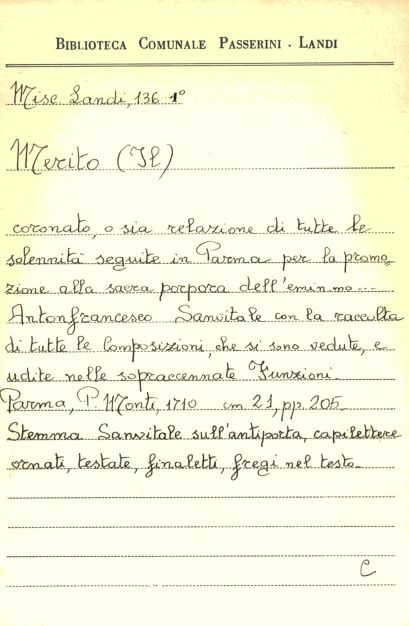 BIBLIOTECA COMUNALE PASSERINI - LANDI
Misc Landi, 136 1°
Merito (Il)
coronato, o sia relazione di tutte le
solennità seguite in Parma per la promo,
zione alla sacra porpora dell'emin.mo ---
Antonfrancesco Sanvitale con la raccolta
di tutte le Composizioni, che si sono vedute, e
udite nelle sopraccennate Funzioni.
Parma, P. Monti, 1710 cm 21, pp. 205.
Stemma Sanvitale sull'antiporta, capilettere
ornati, testate, finaletti, fregi nel testo.
C